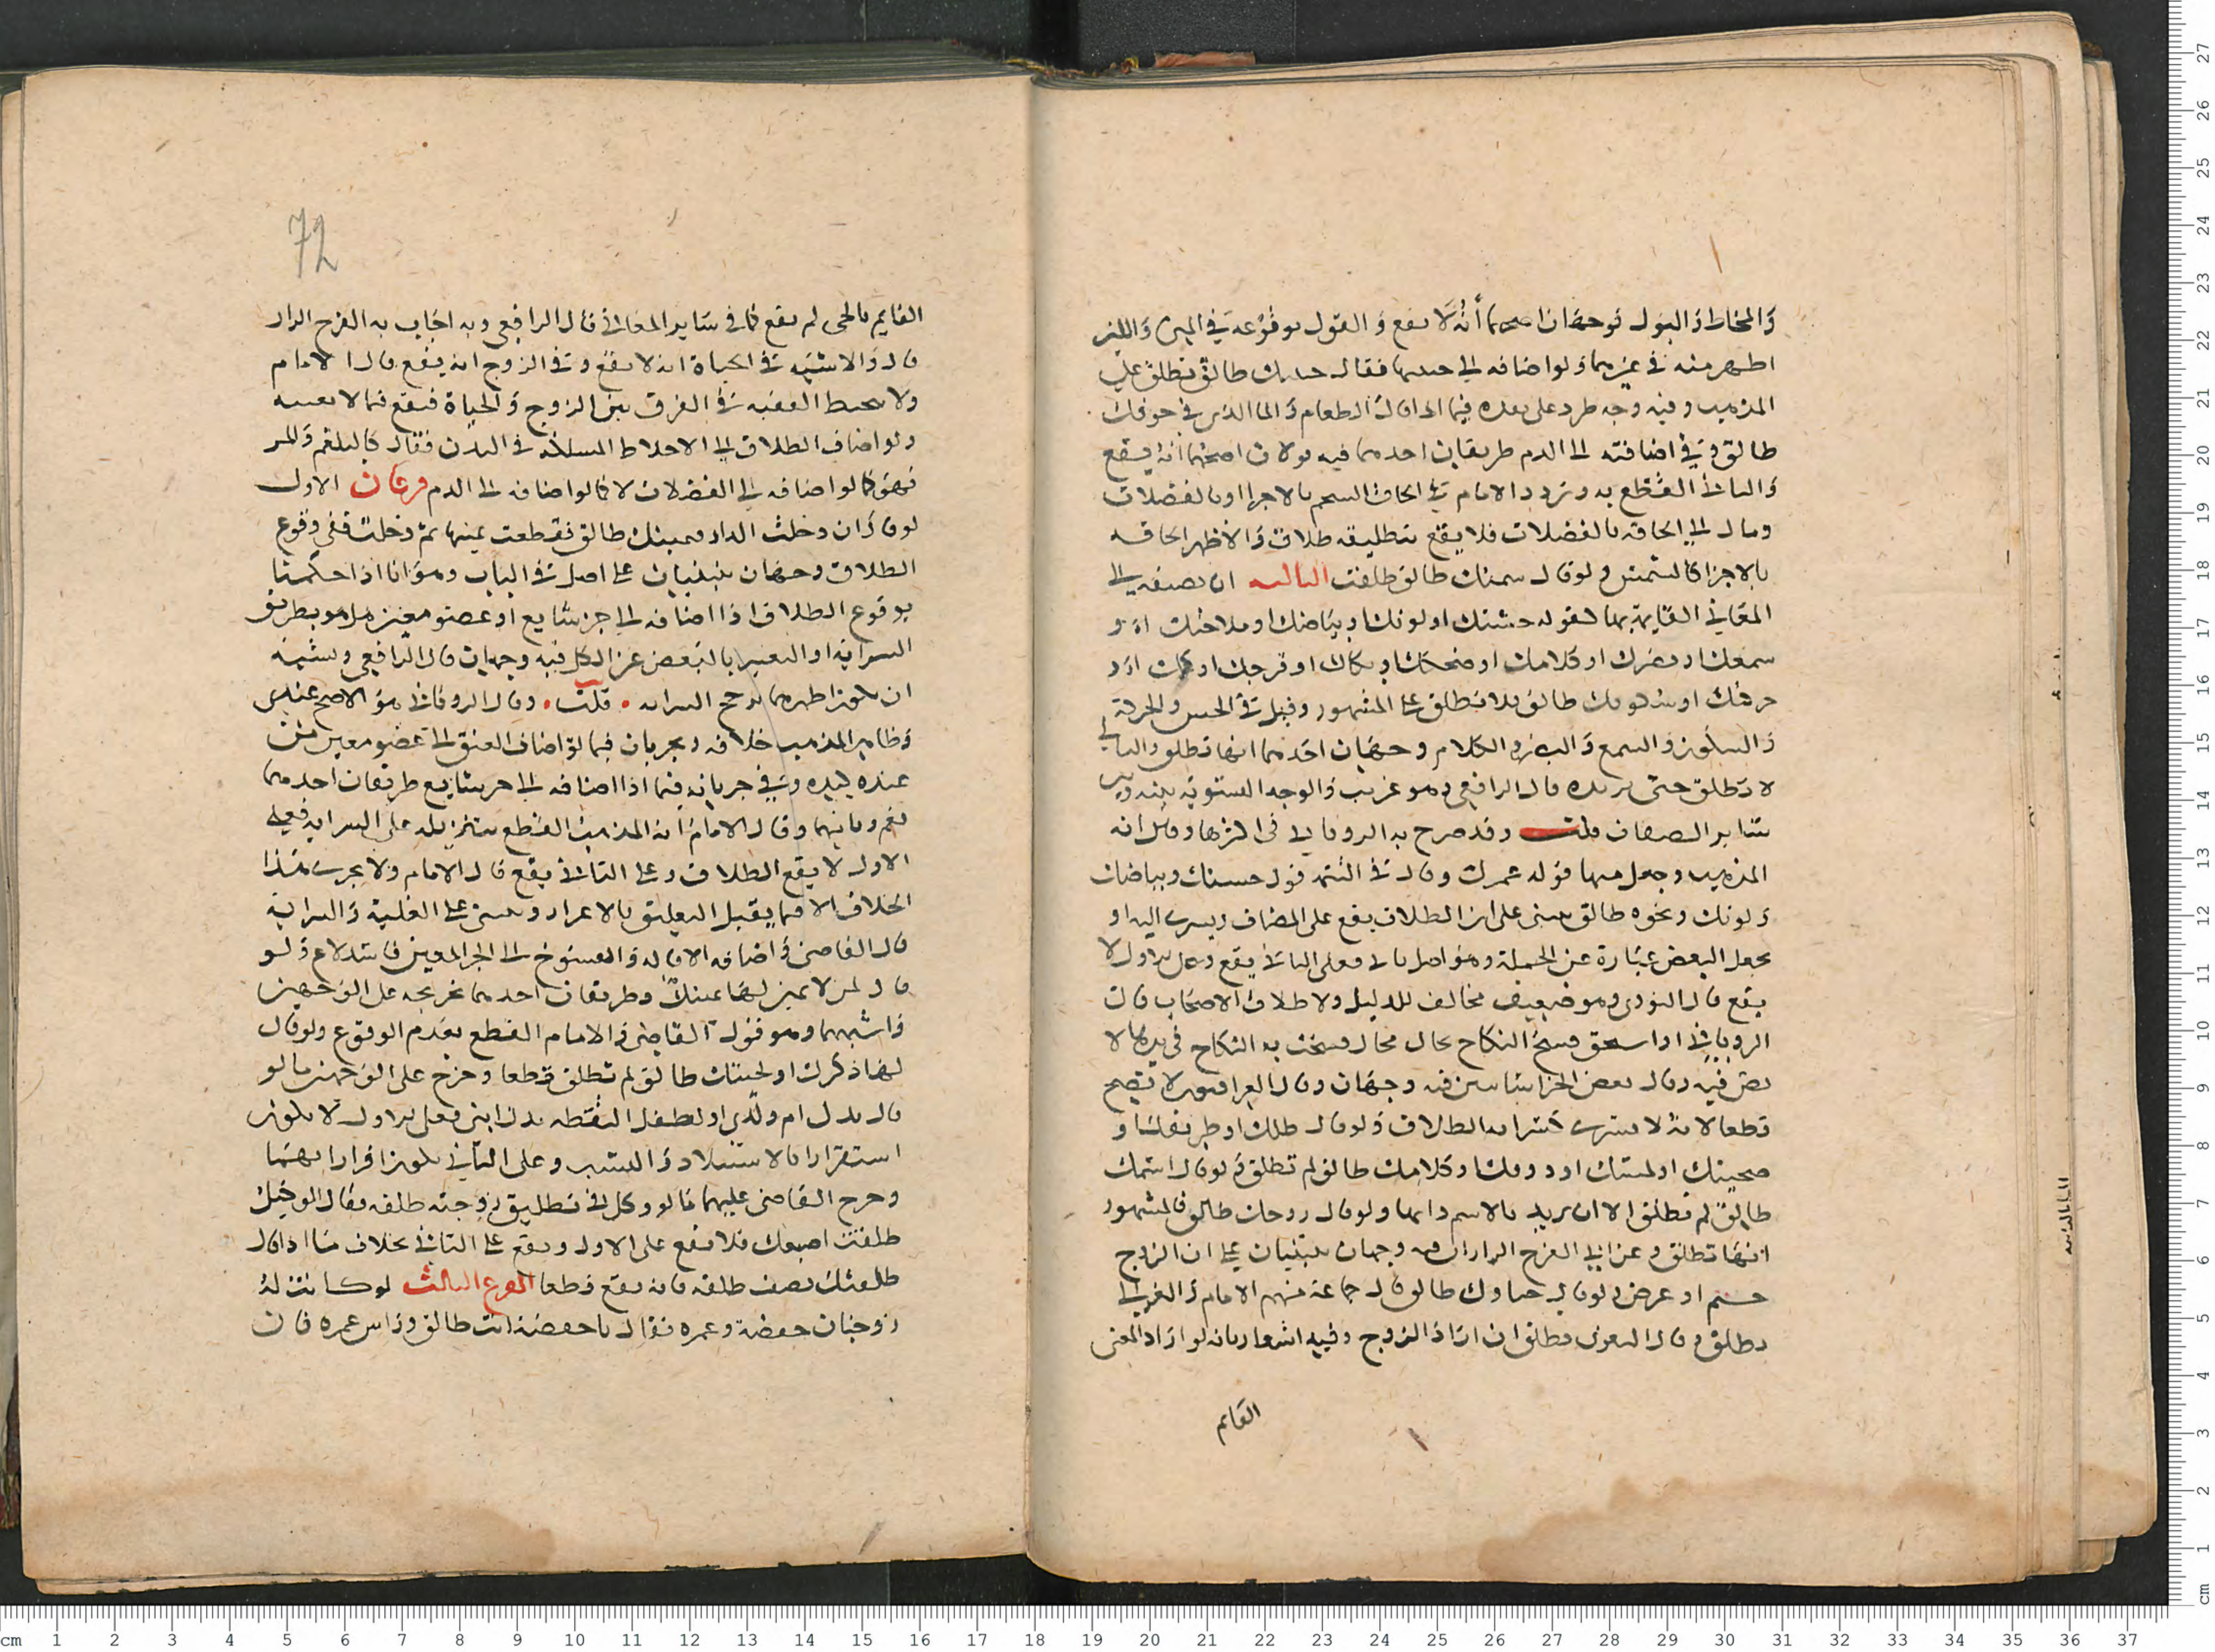 والمخاط والبول فوجهان اصحهما أنه لا يقع والقول بوقوعه في المني واللبن
اظهر منه في غيرهما ولو اضافه الى جنينها فقال جنينك طالق تطلق علي
المذهب وفيه وجه طرد على بعده فيما اذا قال الطعام والما الذي في جوفك
طالق وفي اضافته الى الدم طريقان احدهما فيه قولان اصحهما انه يقع
والثاني القطع به وتردد الامام في الحاق الشحم بالاجزا او بالفضلات
ومال الى الحاقه بالفضلات فلا يقع بتطليقه طلاق والاظهر الحاقه
بالاجزا كالسمن ولو قال سمنك طالق طلقت الثالثه ان يضيفه الى
المعاني القايمة بها كقوله حسنك او لونك او بياضك او ملاحتك او
سمعك او بصرك او كلامك او ضحكك او بكاك او فرحك او او
حركتك او سكونك طالق فلا تطلق على المشهور وقيل في الحس والحركة
والسكون والسمع والبصر والكلام وجهان احدهما انها تطلق والثاني
لا تطلق حتى يريده قال الرافعي وهو غريب والوجه التسوية بينه وبين
ساير الصفات قلت وقد صرح به الروياني في اكثرها وقال انه
المذهب وجعل منها قوله عمرك وقال في التتمه قوله حسنك وبياضك
ولونك ونحوه طالق مبني على ان الطلاق يقع على المضاف ويسري اليه او
يجعل البعض عبارة عن الجملة وهو اصل ياتي فعلى الثاني يقع وعلى الاول لا
يقع قال النووي وهو ضعيف مخالف للدليل ولاطلاق الاصحاب قال
الروياني اذا استحق فسخ النكاح بحال فقال فسخت به النكاح في يدها لا
نص فيه وقال بعض الخراسانيين فيه وجهان وقال العراقيون لا يصح
قطعا لانه لا يسري كسراية الطلاق ولو قال ظلك او طريقك او
صحبتك او لمستك او ذوقك او كلامك طالق لم تطلق ولو قال اسمك
طالق لم تطلق الا ان يريد بالاسم ذاتها ولو قال روحك طالق فالمشهور
انها تطلق وعن ابي الفرج الزاز ان فيه وجهان يبتنيان على ان الروح
جسم او عرض ولو قال حياتك طالق قال جماعة منهم الامام والغزالي
تطلق وقال البغوي تطلق ان اراد الروح وفيه اشعار بانه لو اراد المعنى
القايم
72
القايم بالحي لم يقع كما في ساير المعاني قال الرافعي وبه اجاب به الفرج الزاز
قال والاشبه في الحياة انه لا يقع وفي الروح انه يقع قال الامام
ولا يحيط الفقيه في الفرق بين الروح والحياة فيقع فيما لا يعنيه
ولو اضاف الطلاق الى الاخلاط المسلكه في البدن فقال كالبلغم والمره
فهو كما لو اضافه الى الفضلات لا كما لو اضافه الى الدم فرعان الاول
لو قال ان دخلت الدار فيمينك طالق فقطعت يمينها ثم دخلت ففي وقوع
الطلاق وجهان يبتنيان على اصل في الباب وهو انا اذا حكمنا
بوقوع الطلاق اذا اضافه الى جز شايع او عضو معين هل هو بطريق
السراية او التعبير بالبعض عن الكل فيه وجهان قال الرافعي ويشبه
ان يكون اظهرهما يرجح السراية . قلت . وقال الروياني هو الاصح عندي
وظاهر المذهب خلافه ويجريان فيما لو اضاف العتق الى عضو معين من
عبده كيده وفي جريانه فيما اذا اضافه الى جز شايع طريقان احدهما
نعم وثانيهما وقال الامام انه المذهب القطع بتنزيله على السراية فعلى
الاول لا يقع الطلاق وعلى الثاني يقع قال الامام ولا يجري هذا
الخلاف الا فيما يقبل التعليق بالاغرار ويبنى على الغلبة والسراية
قال القاضي واضافه الاقاله والفسوخ الى الجز المعين فاسد لاغ ولو
قال لمن لا يمين لها يمينك وطريقان احدهما تخريجه على الوجهين
واشبههما وهو قول القاضي والامام القطع بعدم الوقوع ولو قال
لها ذكرك او لحيتك طالق لم تطلق قطعا وخرج على الوجهين ما لو
قال يدك ام ولدي او لطفل التقطه يدك ابني فعلى الاول لا يكون
استقرارا بالاستيلاد والنسب وعلى الثاني يكون اقرارا بهما
وخرج القاضي عليهما ما لو وكل في تطليق زوجته طلقه فقال الوكيل
طلقت اصبعك فلا يقع على الاول ويقع على الثاني بخلاف ما اذا قال
طلقتك نصف طلقه فانه يقع قطعا الفرع الثالث لو كانت له
زوجتان حفصة وعمره فقال يا حفصة انت طالق وراس عمره فان